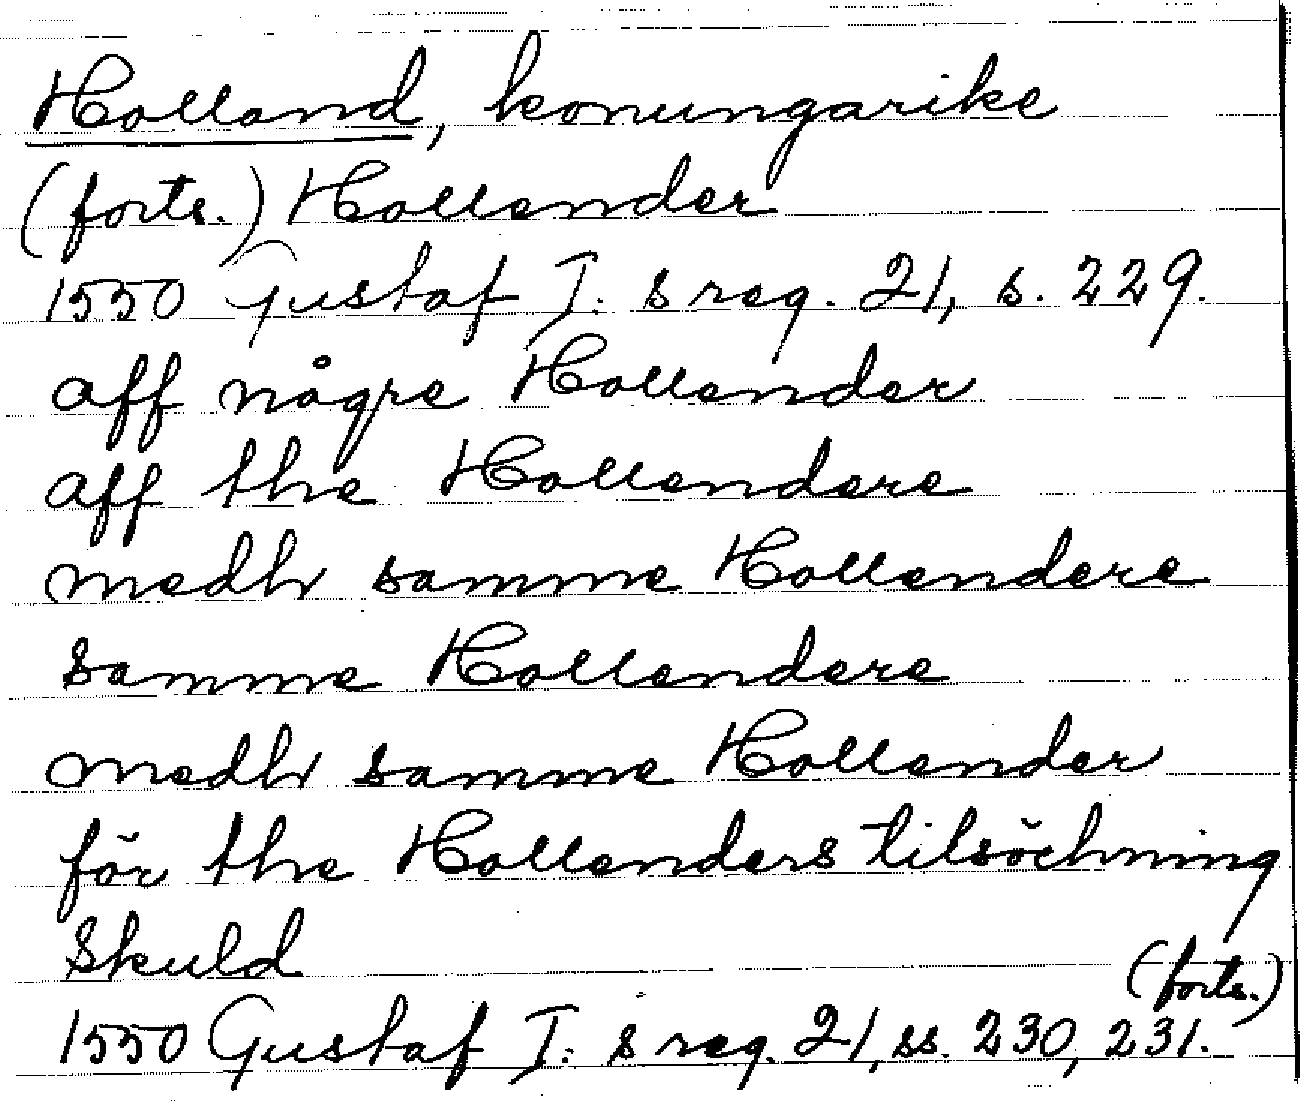 Holland, konungarike
(forts.) Hollender
1550 Gustaf I: s reg. 21, s. 229.
aff någre Hollender
aff the Hollendere
medh samme Hollendere
samme Hollendere
medh samme Hollender
för the Hollenders tilsöchning
skuld
(forts.)
1550 Gustaf I: s reg. 21, ss. 230, 231.